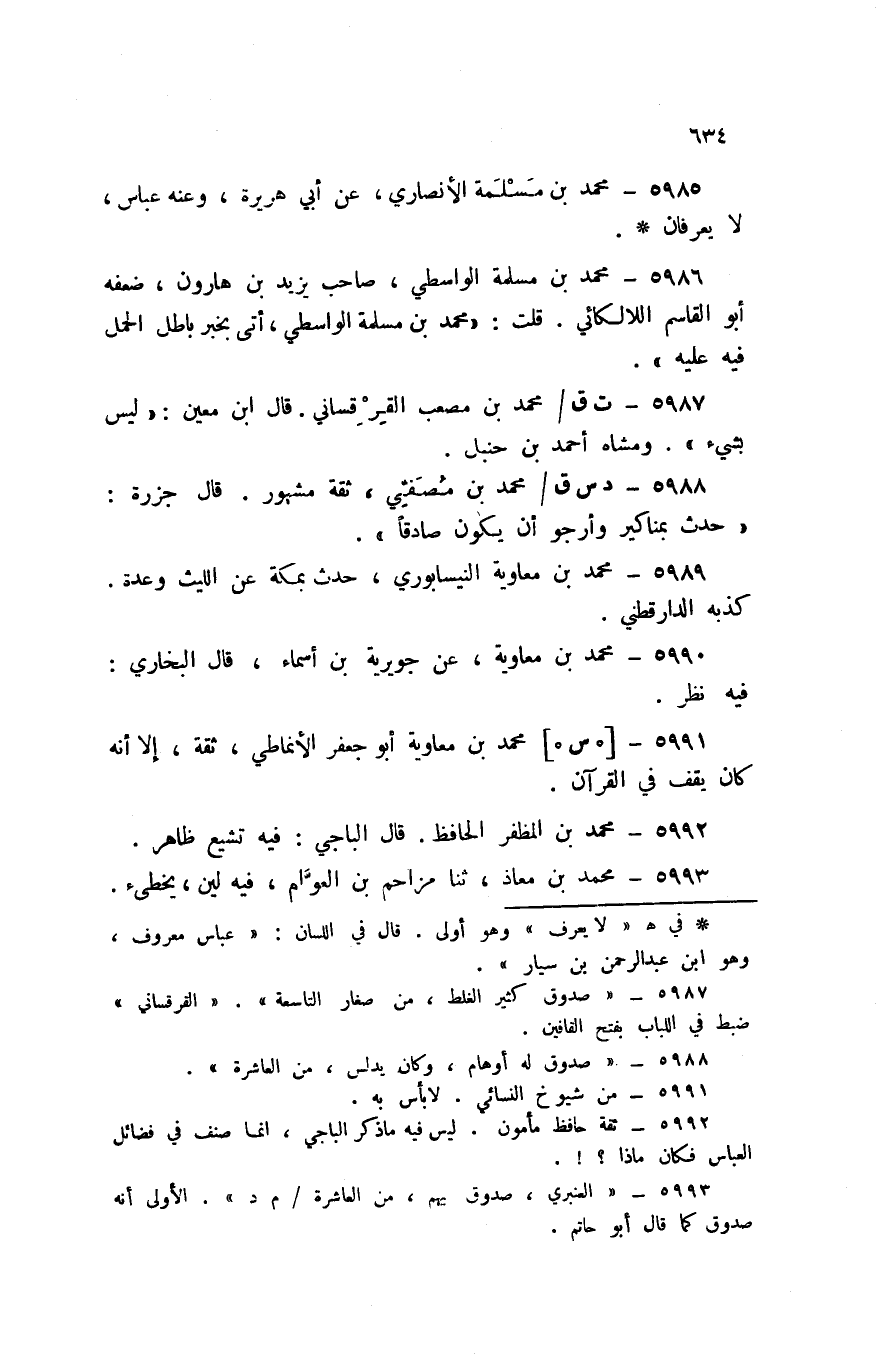 ٦٣٤
٥٩٨٥ – محمد بن مَسْلَمة الأنصاري ، عن أبي هريرة ، وعنه عباس ،
لا يعرفان * .
٥٩٨٦ – محمد بن مسلمة الواسطي ، صاحب يزيد بن هارون ، ضعفه
أبو القاسم اللالكائي . قلت : «محمد بن مسلمة الواسطي ، أتى بخبر باطل الحمل
فيه عليه » .
٥٩٨٧ – ت ق / محمد بن مصعب القِرْقِساني . قال ابن معين : « ليس
بشيء » . ومشاه أحمد بن حنبل .
٥٩٨٨ – د س ق / محمد بن مُصَفّىٰ ، ثقة مشهور . قال جزرة :
« حدث بمناكير وأرجو أن يكون صادقاً » .
٥٩٨٩ – محمد بن معاوية النيسابوري ، حدث بمكة عن الليث وعدة .
كذبه الدارقطني .
٥٩٩٠ – محمد بن معاوية ، عن جويرية بن أسماء ، قال البخاري :
فيه نظر .
٥٩٩١ – [ ه س ه ] محمد بن معاوية أبو جعفر الأنماطي ، ثقة ، إلا أنه
كان يقف في القرآن .
٥٩٩٢ – محمد بن المظفر الحافظ . قال الباجي : فيه تشيع ظاهر .
٥٩٩٣ – محمد بن معاذ ، ثنا مزاحم بن العوَّام ، فيه لين ، يخطىء .
* في ه « لا يعرف » وهو أولى . قال في اللسان : « عباس معروف ،
وهو ابن عبدالرحمن بن سيار » .
٥٩٨٧ – « صدوق كثير الغلط ، من صغار التاسعة » . « القرقساني »
ضبط في اللباب بفتح القافين .
٥٩٨٨ – « صدوق له أوهام ، وكان يدلس ، من العاشرة » .
٥٩٩١ – من شيوخ النسائي . لابأس به .
٥٩٩٢ – ثقة حافظ مأمون . ليس فيه ماذكر الباجي ، انما صنف في فضائل
العباس فكان ماذا ؟ ! .
٥٩٩٣ – « العنبري ، صدوق يهم ، من العاشرة / م د » . الأولى أنه
صدوق كما قال أبو حاتم .